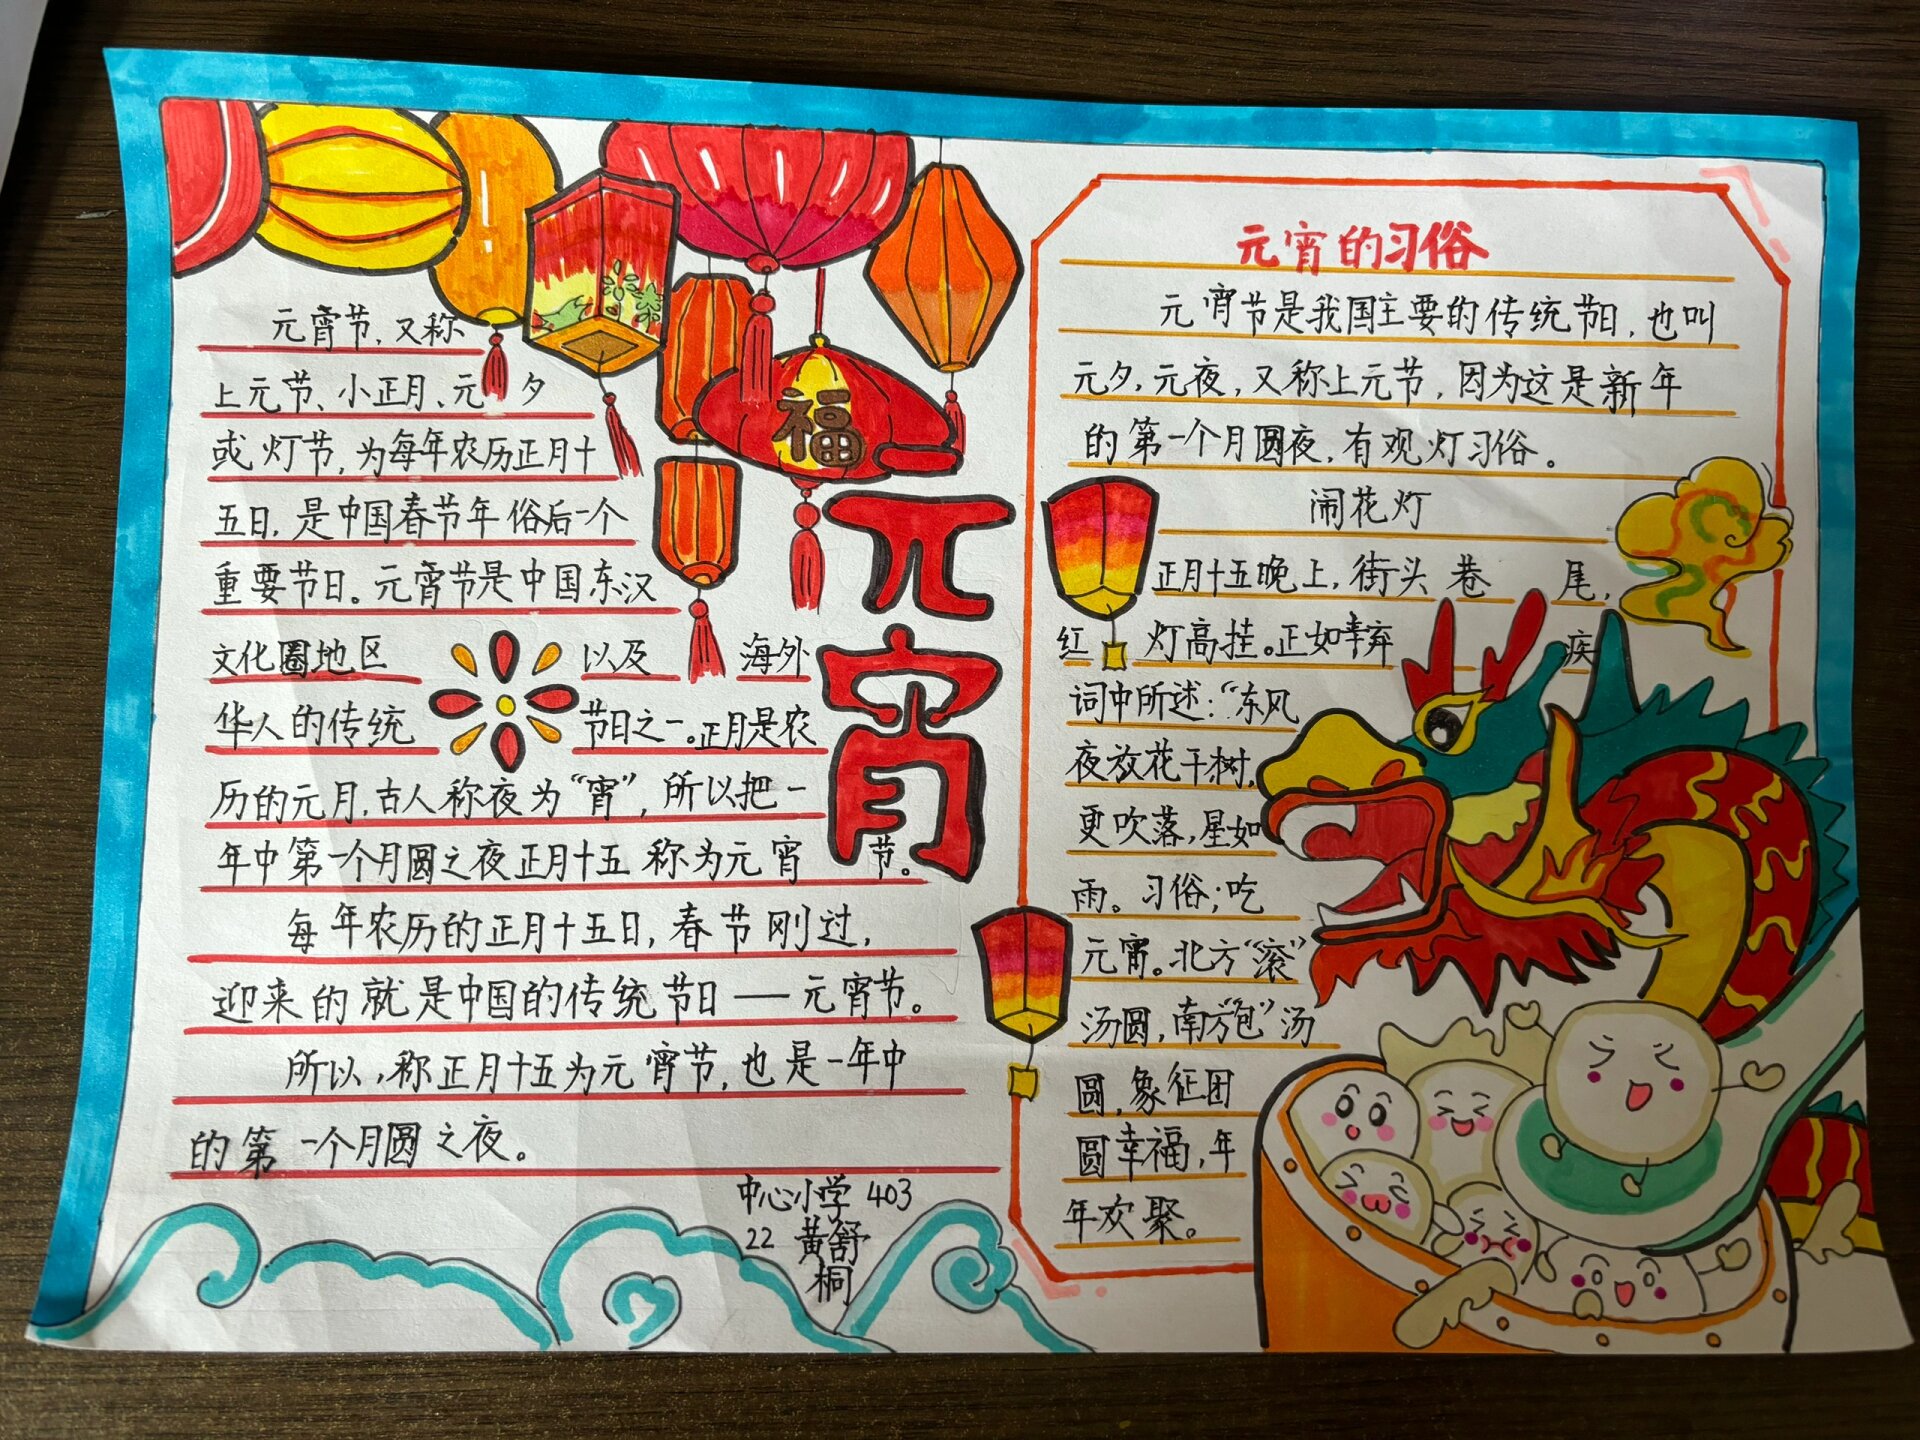 元宵节，又称
上元节、小正月、元夕
或灯节，为每年农历正月十
五日，是中国春节年俗后一个
重要节日。元宵节是中国东汉
文化圈地区以及海外
华人的传统节日之一。正月是农
历的元月，古人称夜为“宵”，所以把一
年中第一个月圆之夜正月十五称为元宵节。
每年农历的正月十五日，春节刚过，
迎来的就是中国的传统节日——元宵节。
所以，称正月十五为元宵节，也是一年中
的第一个月圆之夜。
中心小学 403
22 黄舒
桐
福
元宵
元宵的习俗
元宵节是我国主要的传统节日，也叫
元夕，元夜，又称上元节，因为这是新年
的第一个月圆夜，有观灯习俗。
闹花灯
正月十五晚上，街头巷尾，
红灯高挂。正如辛弃疾
词中所述：“东风
夜放花千树，
更吹落，星如
雨。习俗；吃
元宵。北方“滚”
汤圆，南方“包”汤
圆，象征团
圆幸福，年
年欢聚。